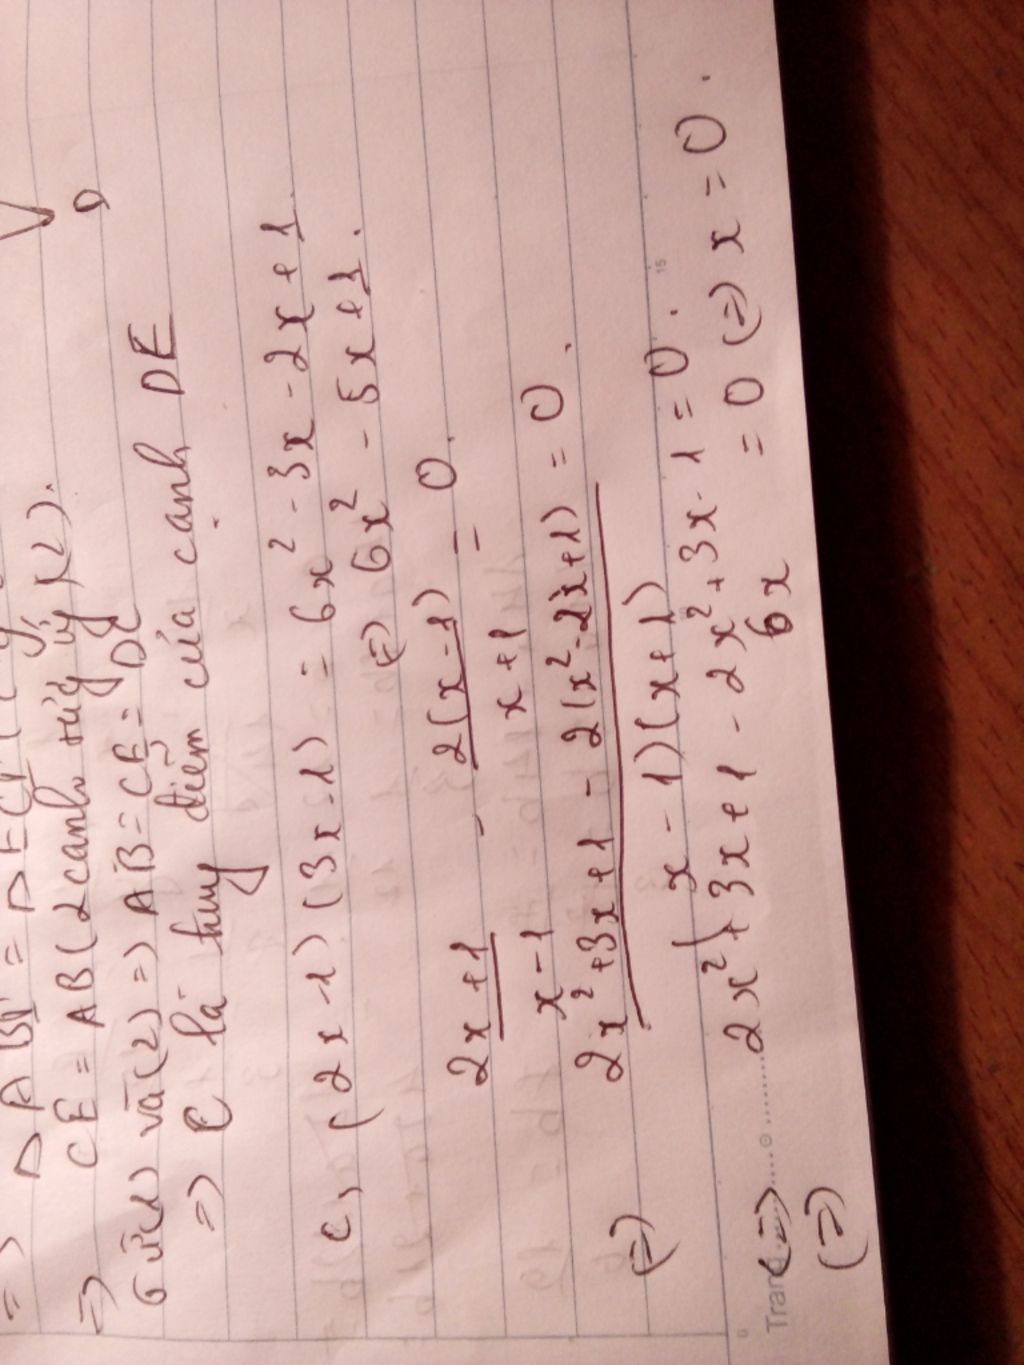 CE = AB (2 cạnh
và (2) => AB = CE = DE
=> C là trung điểm của cạnh DE
c, (2x-1)(3x-1) = 6x² - 3x - 2x + 1
(=) 6x² - 5x + 1.
2x+1 / x-1 - 2(x-1) / x+1 = 0.
(=) 2x²+3x+1 - 2(x²-2x+1) / (x-1)(x+1) = 0.
(=) 2x²+3x+1 - 2x²+3x-1 = 0.
(=) 6x = 0 (=) x = 0.
15
Trang